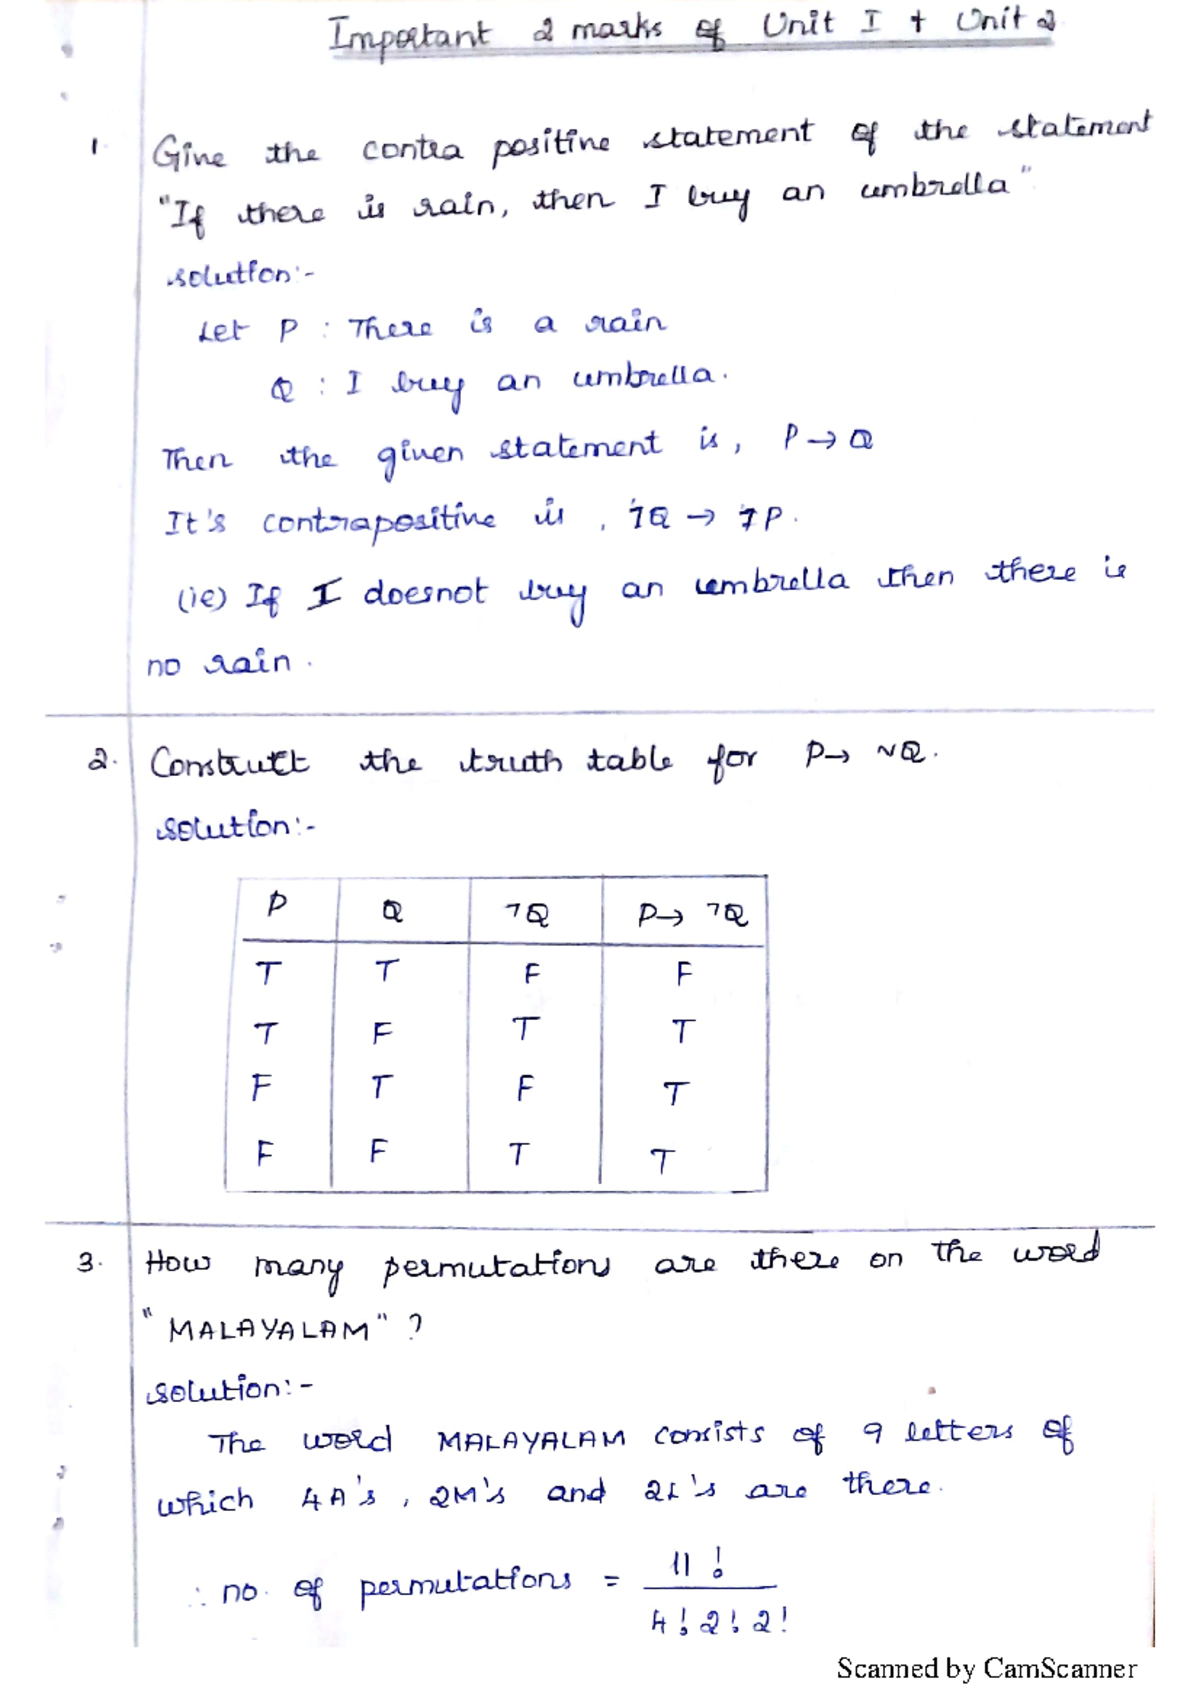 Important 2 marks of Unit I + Unit 2
1. Give the contra positive statement of the statement
"If there is rain, then I buy an umbrella"
solution:-
Let P : There is a rain
Q : I buy an umbrella.
Then the given statement is, P → Q
It's contrapositive is, ¬Q → ¬P.
(ie) If I doesnot buy an umbrella then there is
no rain.
2. Construct the truth table for P → ~Q.
solution:-
P Q ¬Q P → ¬Q
T T F F
T F T T
F T F T
F F T T
3. How many permutations are there on the word
"MALAYALAM" ?
solution:-
The word MALAYALAM consists of 9 letters of
which 4A's, 2M's and 2L's are there.
∴ no. of permutations = 11! / 4! 2! 2!
Scanned by CamScanner